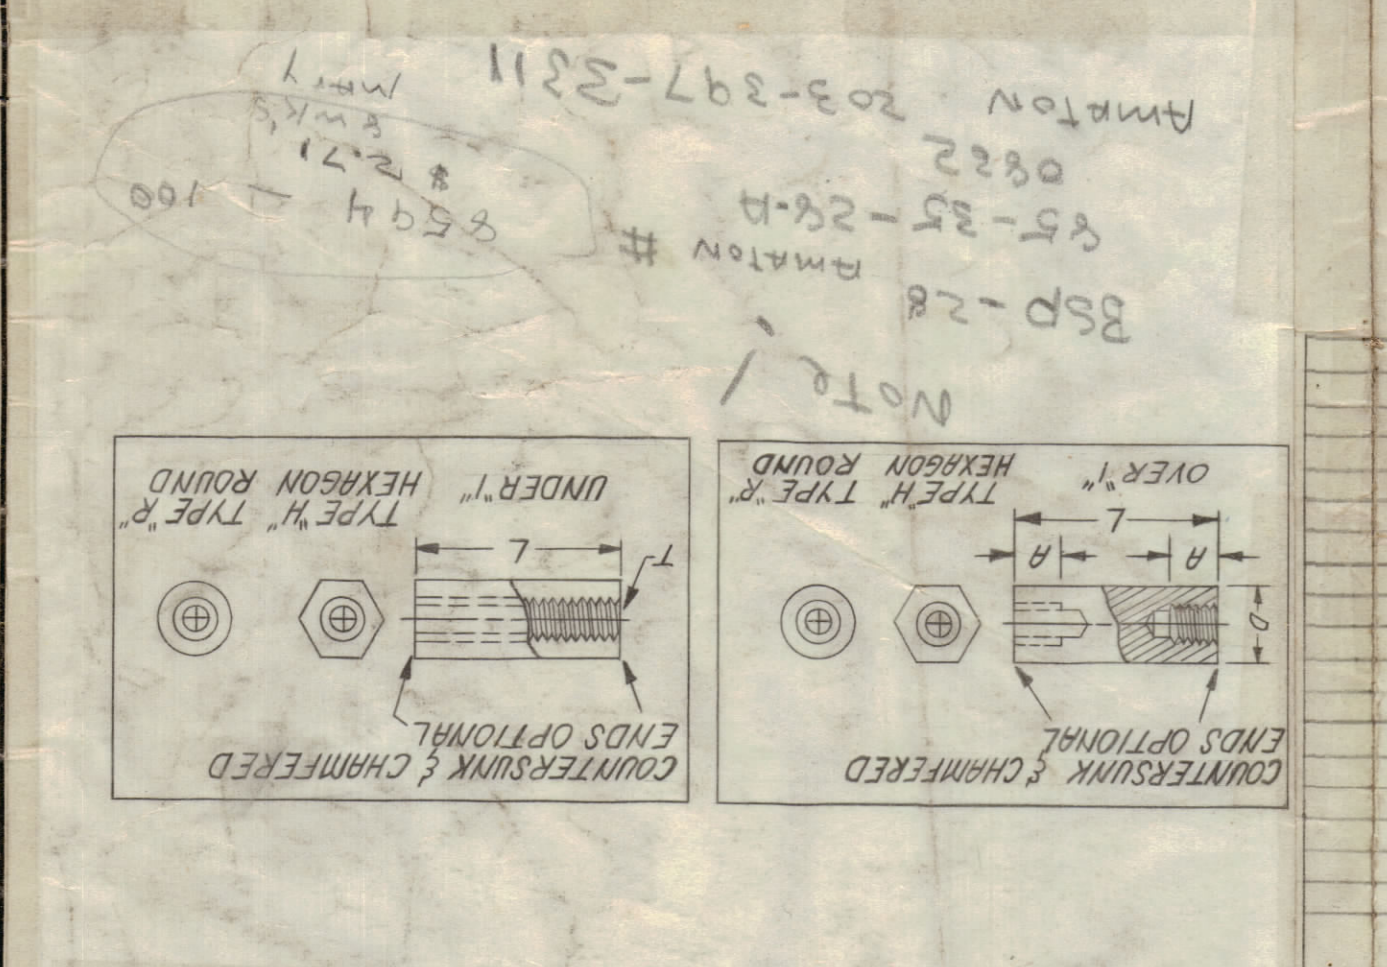 COUNTERSUNK & CHAMFERED
ENDS OPTIONAL
D
A
A
L
OVER 1"
TYPE "H"
HEXAGON
TYPE "R"
ROUND
COUNTERSUNK & CHAMFERED
ENDS OPTIONAL
T
L
UNDER 1"
TYPE "H"
HEXAGON
TYPE "R"
ROUND
NOTE!
BSP-28
AMATON #
85-35-28-A
0832
AMATON 203-397-3311
8594 - 100
$2.71
8 WK'S
MARY